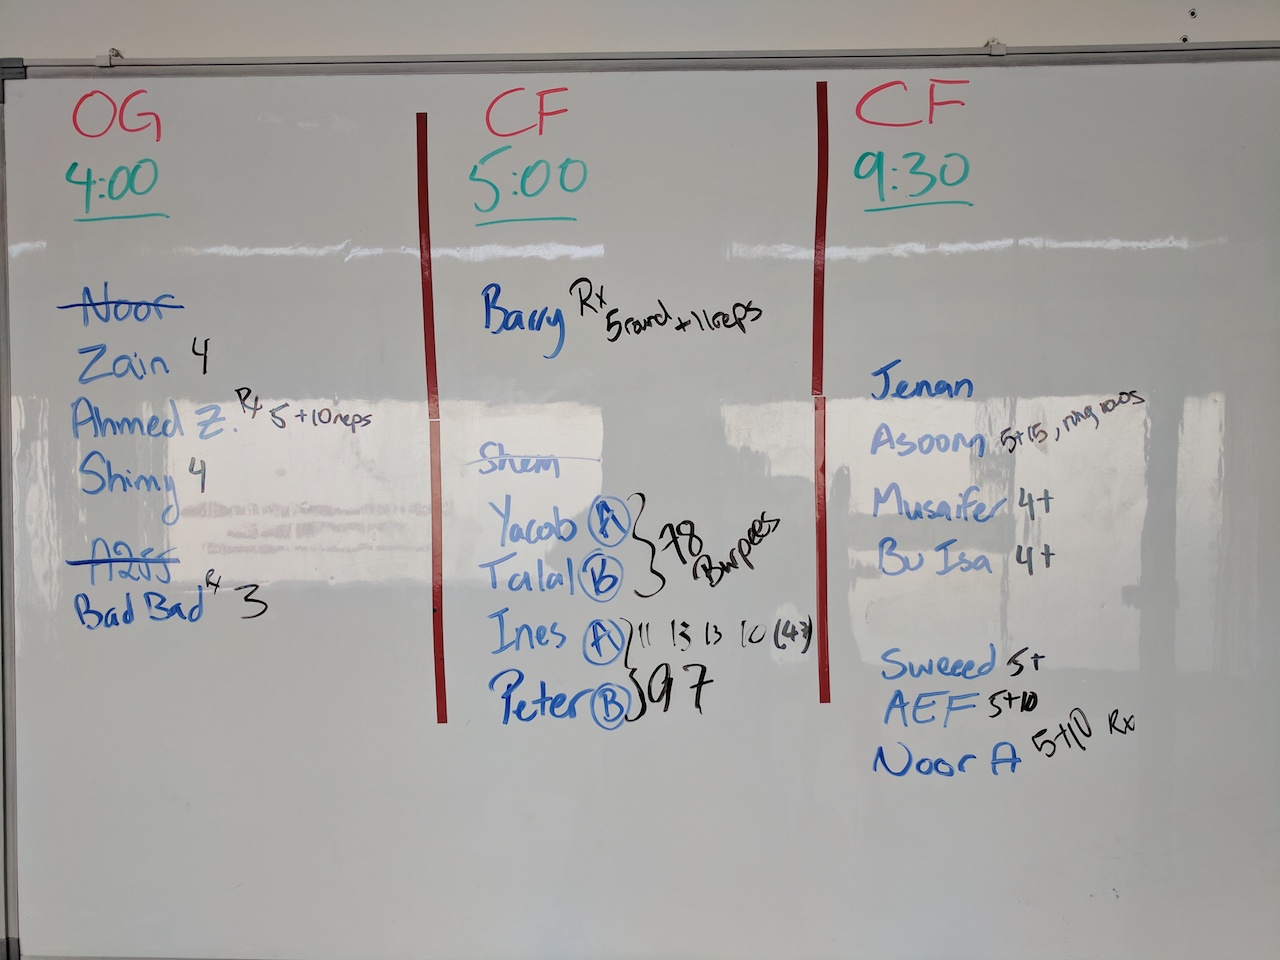 OG
4:00
Noor
Zain 4
Ahmed Z. Rx 5 +10 reps
Shimy 4
Bad Bad Rx 3
CF
5:00
Barry Rx 5 round + 11 reps
Shem
Yacob A
Talal B
78 Burpees
Ines A 11 13 13 10 (47)
Peter B 97
CF
9:30
Jenan
Asoom 5+15, ring rows
Musaifer 4+
Bu Isa 4+
Sweeed 5+
AEF 5+10
Noor A 5+10 Rx